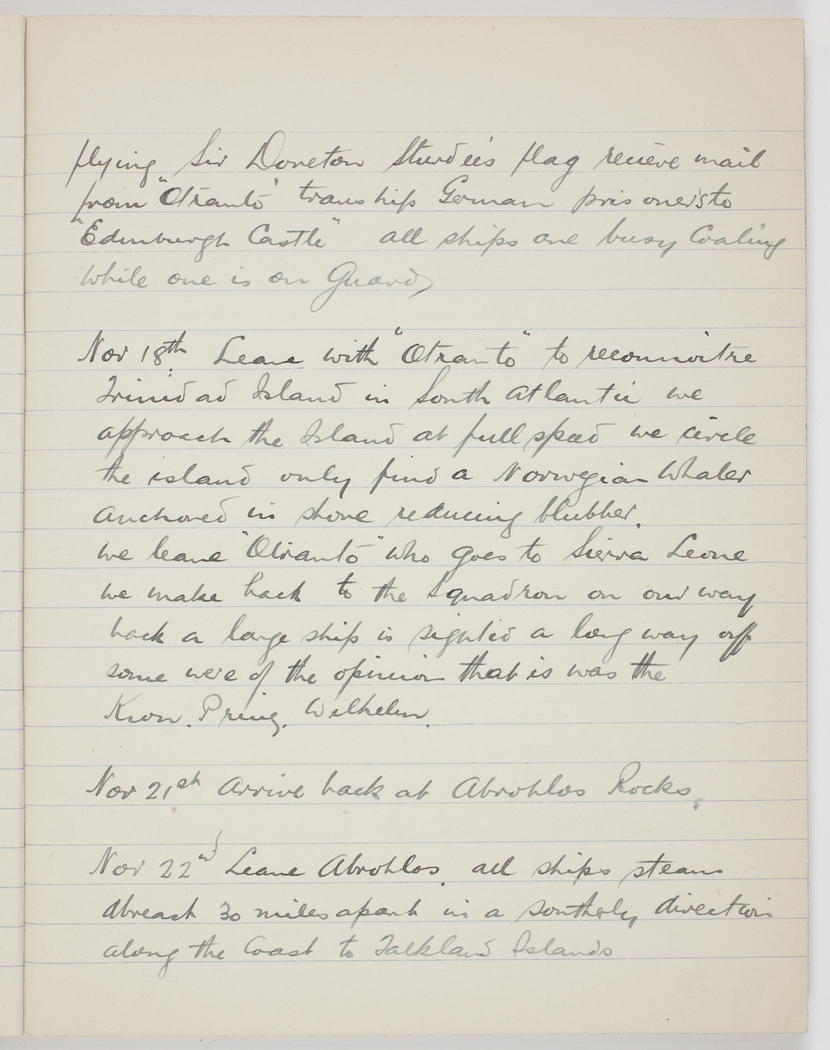 flying Sir Doveton Sturdee's flag recieve mail
from "Otranto" tranship German prisoners to
"Edinburgh Castle" all ships are busy Coaling
while one is on Guard
Nov 18th. Leave with "Otranto" to reconnoitre
Trinidad Island in South Atlantic we
approach the Island at full speed we circle
the island only find a Norwegian Whaler
anchored in shore reducing blubber.
we leave "Otranto" who goes to Sierra Leone
we make back to the Squadron on our way
back a large ship is sighted a long way off
some were of the opinion that is was the
Kron. Prinz. Wilhelm.
Nov 21st Arrive back at Abrohlos Rocks.
Nov 22nd Leave Abrohlos. all ships steam
abreast 30 miles apart in a southerly direction
along the Coast to Falkland Islands